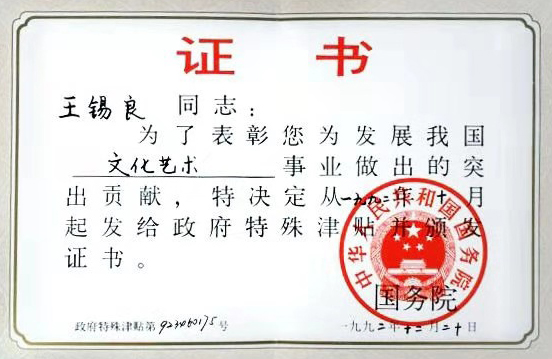 证书
王锡良 同志：
为了表彰您为发展我国
文化艺术 事业做出的突
出贡献，特决定从一九九二年十月
起发给政府特殊津贴并颁发
证书。
中华人民共和国国务院
国务院
政府特殊津贴第 号
一九九二年十二月二十日